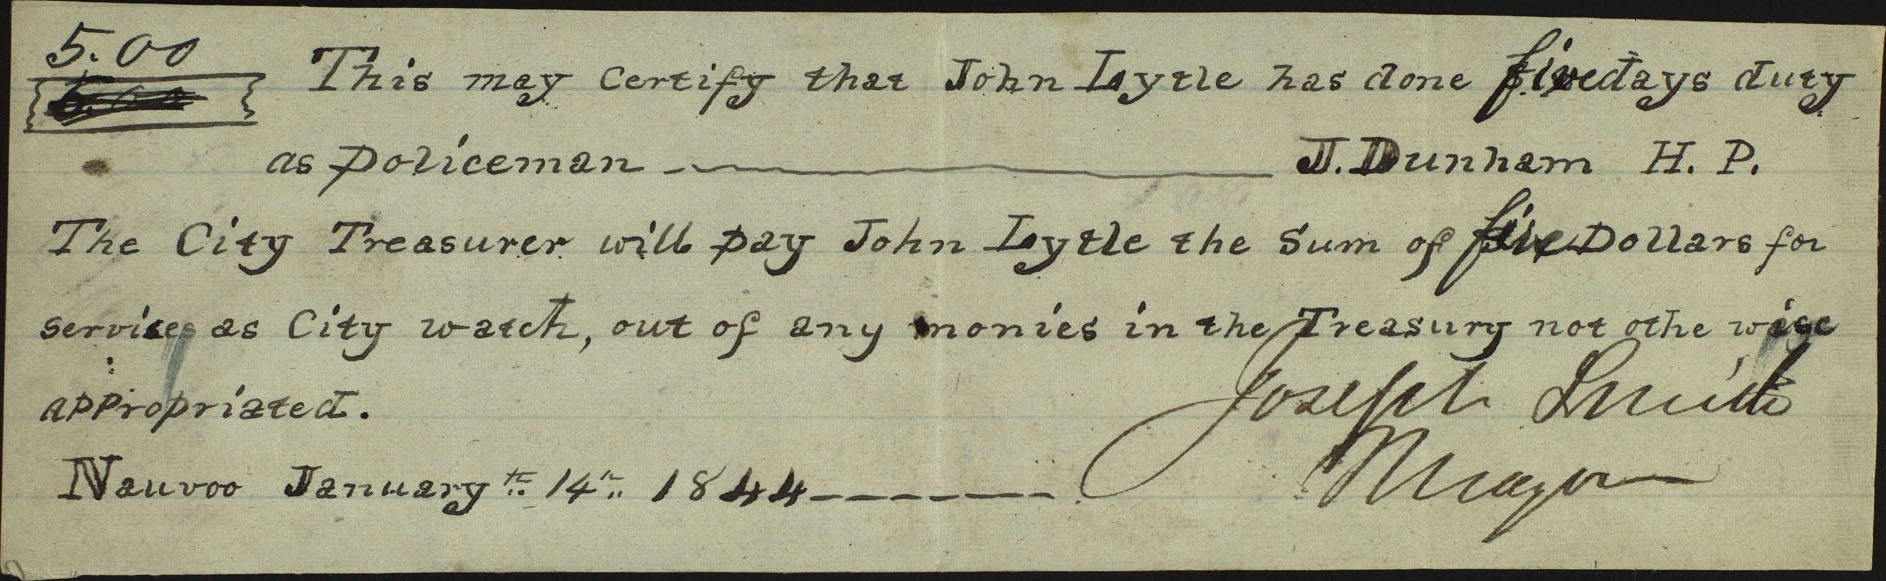 5.00
This may certify that John Lytle has done five days duty
as policeman J. Dunham H. P.
The City Treasurer will pay John Lytle the Sum of five Dollars for
services as City watch, out of any monies in the Treasury not othe wise
appropriated.
Joseph Smith
Nauvoo January th 14th 1844
Mayor